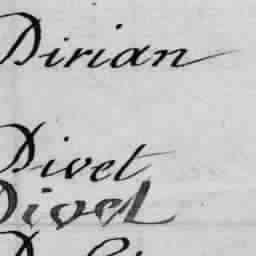 Dirian
Divet
Divet